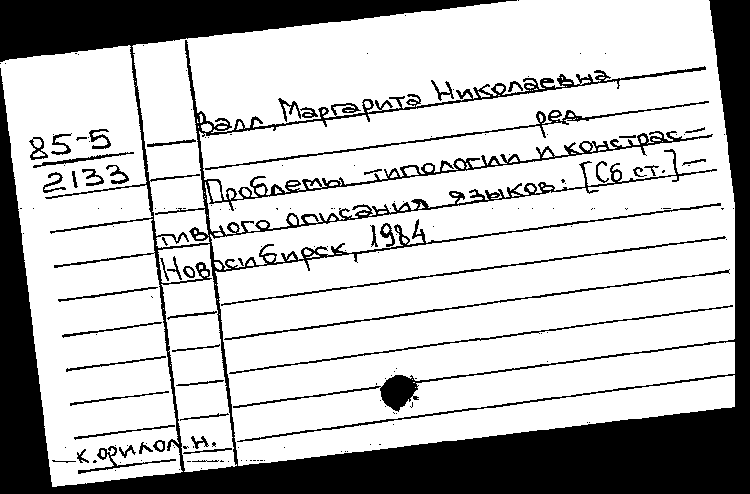 Валл, Маргарита Николаевна,
ред.
85-5
2133
Проблемы типологии и констрас-
тивного описания языков: [Сб.ст.]—
Новосибирск, 1984.
к.филол.н.